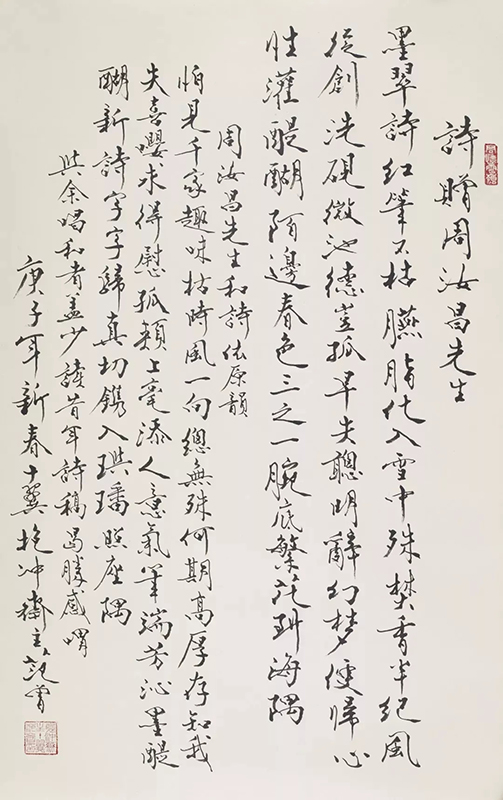 詩贈周汝昌先生
墨翠詩紅筆不枯臙脂化入雪中殊焚香半紀風
從創洗硯微池德豈孤早失聰明辭幻夢便歸心
性灌醍醐陌邊春色三之一腕底繁花珊海隅
周汝昌先生和詩依原韻
怕見千家趣味枯時風一向總無殊何期高厚存知我
失喜嚶求得慰孤頰上毫添人意氣筆端芳沁墨醍
醐新詩字字歸真切鐫入璵璠照座隅
與余唱和者蓋少讀昔年詩稿曷勝感喟
庚子年新春十翼抱冲齋主范曾